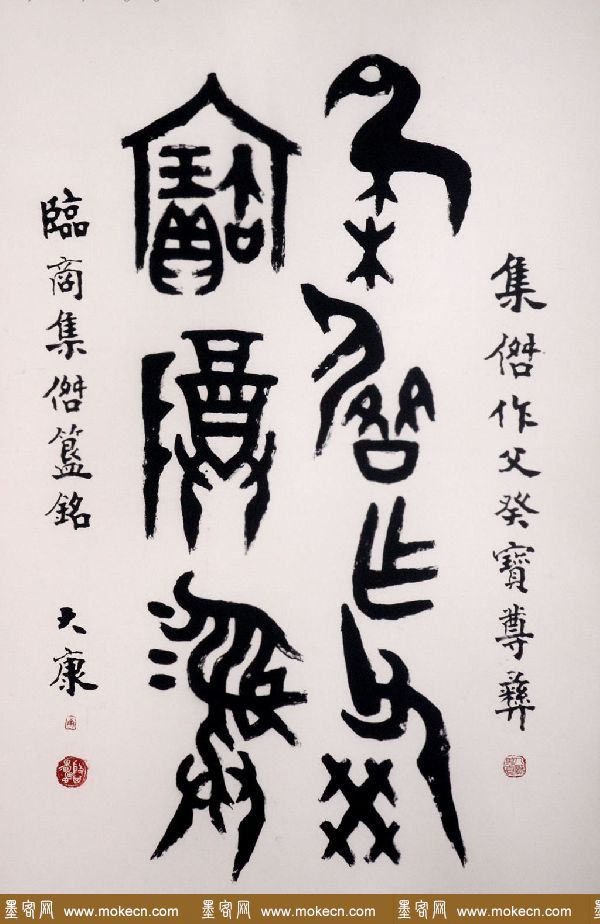 集傑作父癸寶尊彝
集傑作父癸
寶尊彝
臨商集傑簋銘 大康
墨客网 www.mokecn.com 墨客网 www.mokecn.com 墨客网 www.mokecn.com